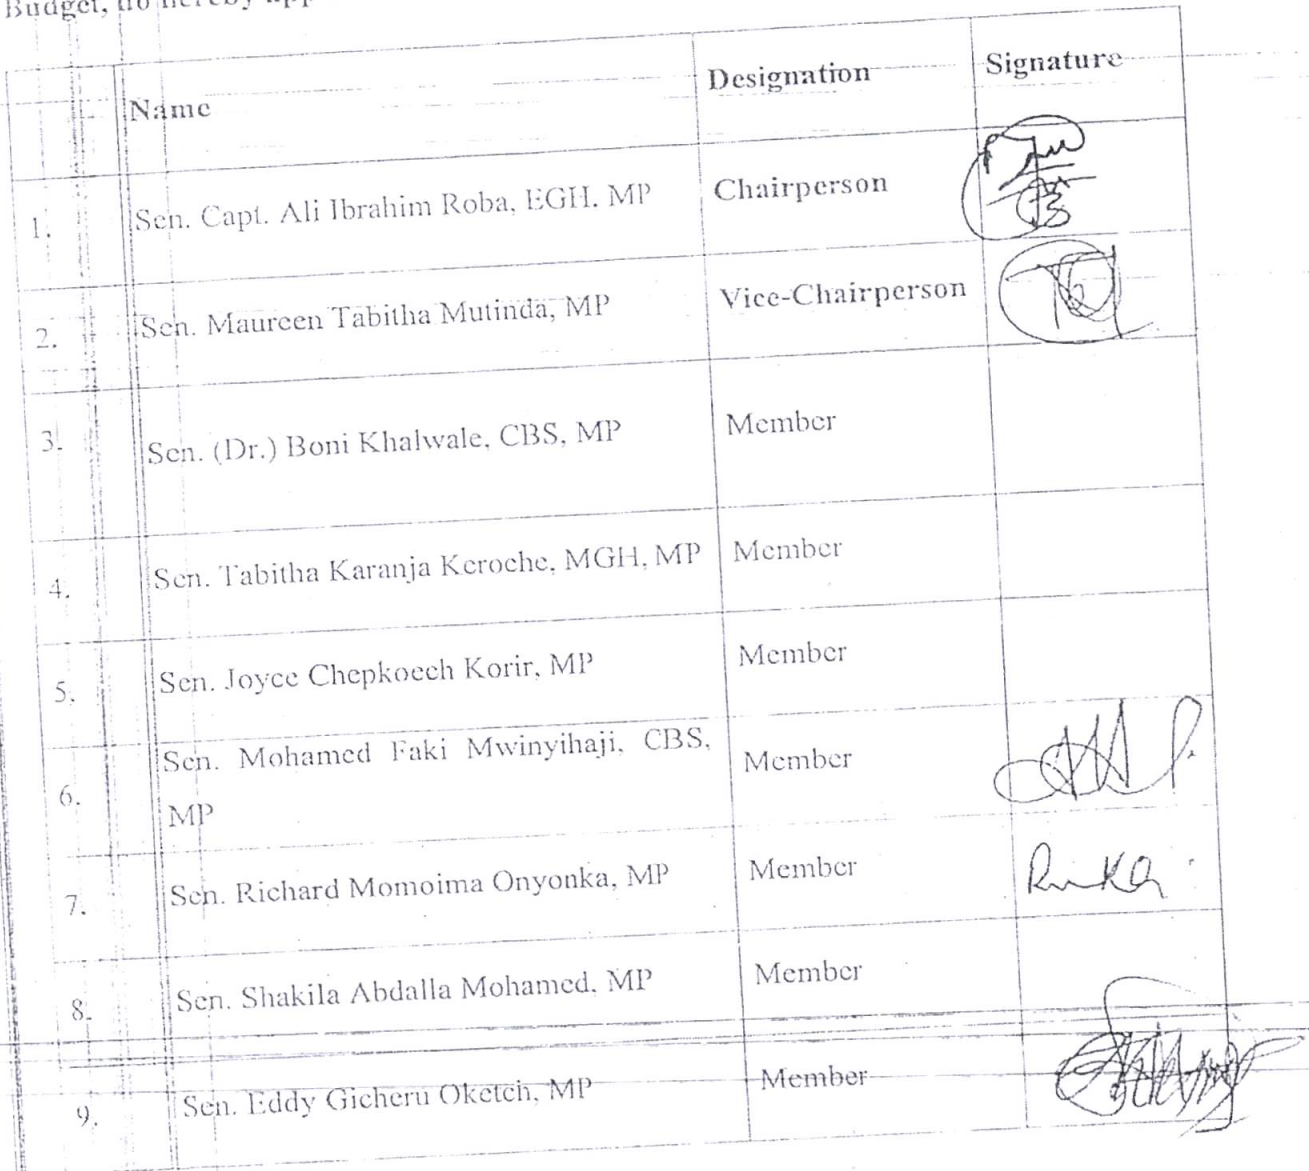 Budget, do hereby app
Name Designation Signature
1. Sen. Capt. Ali Ibrahim Roba, EGH, MP Chairperson
2. Sen. Maureen Tabitha Mutinda, MP Vice-Chairperson
3. Sen. (Dr.) Boni Khalwale, CBS, MP Member
4. Sen. Tabitha Karanja Keroche, MGH, MP Member
5. Sen. Joyce Chepkoech Korir, MP Member
6. Sen. Mohamed Faki Mwinyihaji, CBS, Member
MP
7. Sen. Richard Momoima Onyonka, MP Member
8. Sen. Shakila Abdalla Mohamed, MP Member
9. Sen. Eddy Gicheru Oketch, MP Member